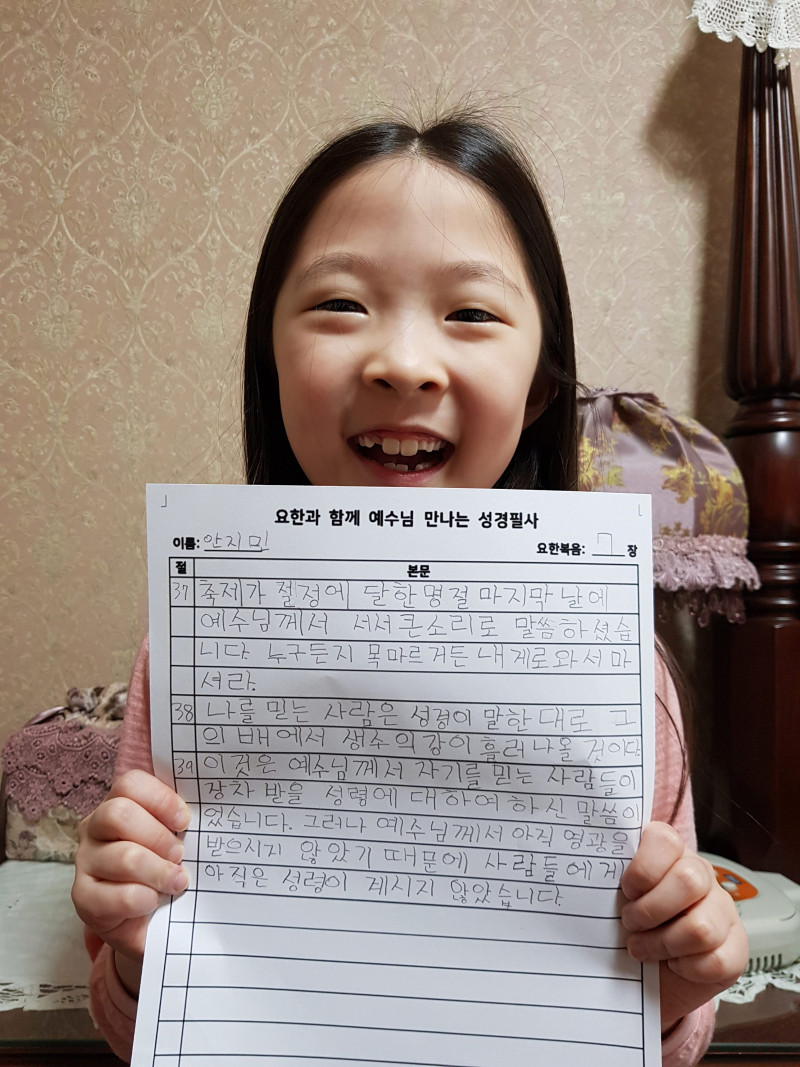 요한과 함께 예수님 만나는 성경필사
이름: 안지민
요한복음: 7 장
절 본문
37 축제가 절정에 달한 명절 마지막 날에
예수님께서 서서 큰소리로 말씀하셨습
니다. 누구든지 목마르거든 내게로 와서 마
셔라.
38 나를 믿는 사람은 성경이 말한 대로 그
의 배에서 생수의 강이 흘러 나올 것이다.
39 이것은 예수님께서 자기를 믿는 사람들이
장차 받을 성령에 대하여 하신 말씀이
었습니다. 그러나 예수님께서 아직 영광을
받으시지 않았기 때문에 사람들에게
아직은 성령이 계시지 않았습니다.